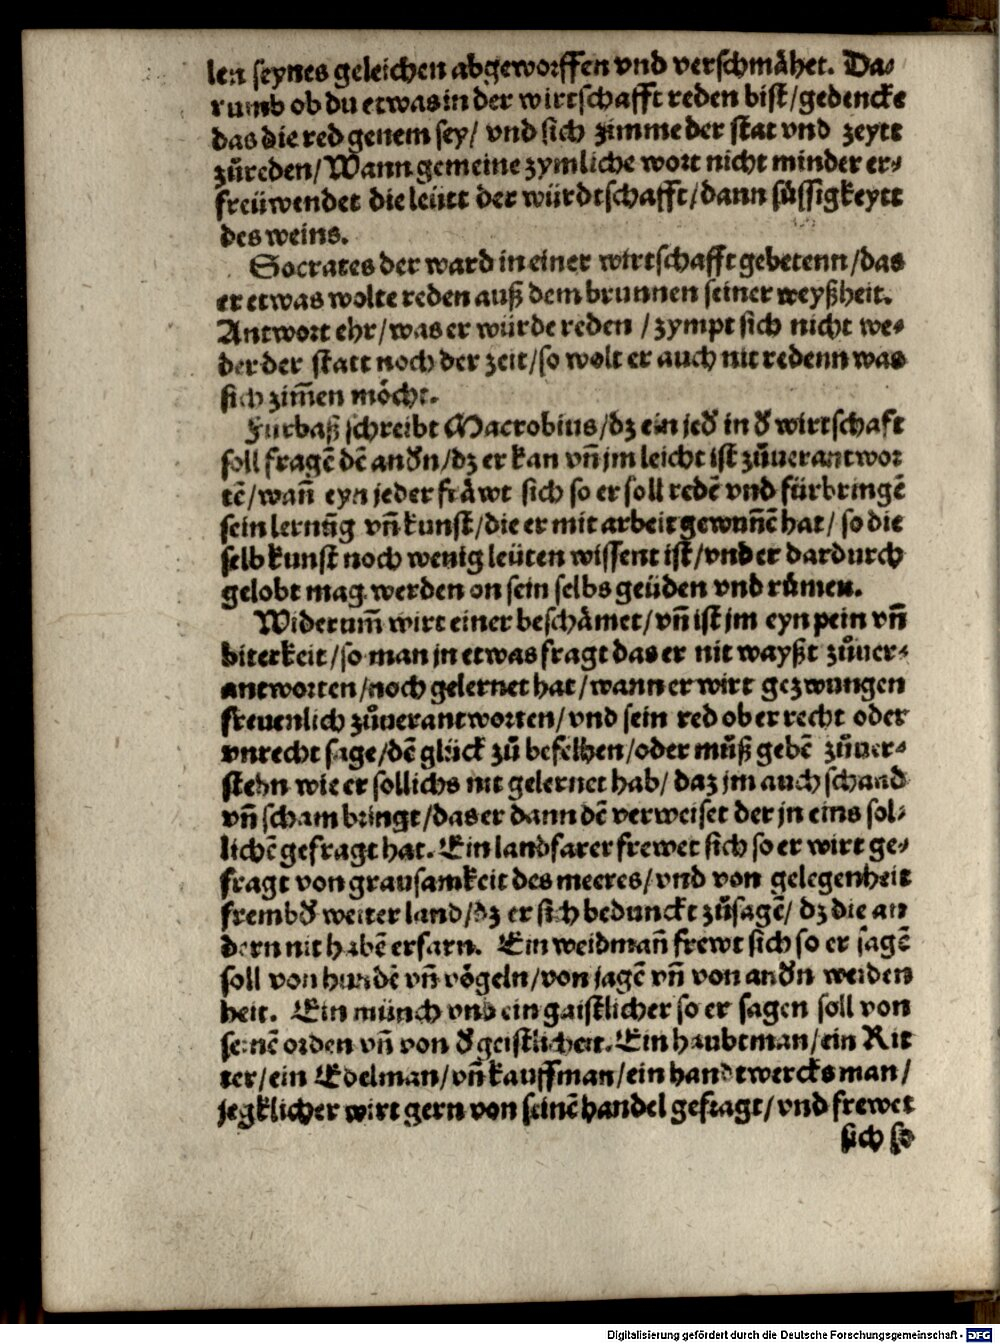 len seynes geleichen abgeworffen vnd verschmåhet. Da⸗
rumb ob du etwas in der wirtschafft reden bist/gedencke
das die red genem sey/ vnd sich zimme der stat vnd zeytt
zůreden/Wann gemeine zymliche wort nicht minder er⸗
freüwendet die leütt der würdtschafft/dann süssigkeytt
des weins.
Socrates der ward in einer wirtschafft gebetenn/das
er etwas wolte reden auß dem brunnen seiner weyßheit.
Antwort ehr/was er würde reden /zympt sich nicht we⸗
der der statt noch der zeit/so wolt er auch nit redenn was
sich zim̃en möcht.
Furbaß schreibt Macrobius/dz ein jeð in ð wirtschaft
soll fragẽ dẽ anðn/dz er kan vñ jm leicht ist zůuerantwor
tẽ/wañ eyn jeder fråwt sich so er soll redẽ vnd fürbringẽ
sein lernũg vñ kunst/die er mit arbeit gewuñẽ hat/ so die
selb kunst noch wenig leüten wissent ist/vnd er dardurch
gelobt mag werden on sein selbs geüden vnd růmen.
Widerum̃ wirt einer beschåmet/vñ ist jm eyn pein vñ
biterkeit/so man jn etwas fragt das er nit wayßt zůuer⸗
antworten/noch gelernet hat/wann er wirt gezwungen
freuenlich zůuerantworten/vnd sein red ob er recht oder
vnrecht sage/dẽ glück zů befelhen/oder můß gebẽ zůuer⸗
stehn wie er sollichs nit gelernet hab/ daz jm auch schand
vñ scham bringt/das er dann dẽ verweiset der jn eins sol⸗
lichẽ gefragt hat. Ein landfarer frewet sich so er wirt ge⸗
fragt von grausamkeit des meeres/vnd von gelegenheit
frembð weiter land/dz er sich bedunckt zůsagẽ/ dz die an
dern nit habẽ erfarn. Ein weidmañ frewt sich so er sagẽ
soll von hundẽ vñ vögeln/von jagẽ vñ von anðn weiden
heit. Ein münch vnd ein gaistlicher so er sagen soll von
seinẽ orden vñ von ð geistlicheit. Ein haubtman/ein Rit
ter/ein Edelman/vñ kauffman/ein handtwercksman/
jegklicher wirt gern von seinẽ handel gefragt/vnd frewet
sich so
Digitalisierung gefördert durch die Deutsche Forschungsgemeinschaft - DFG